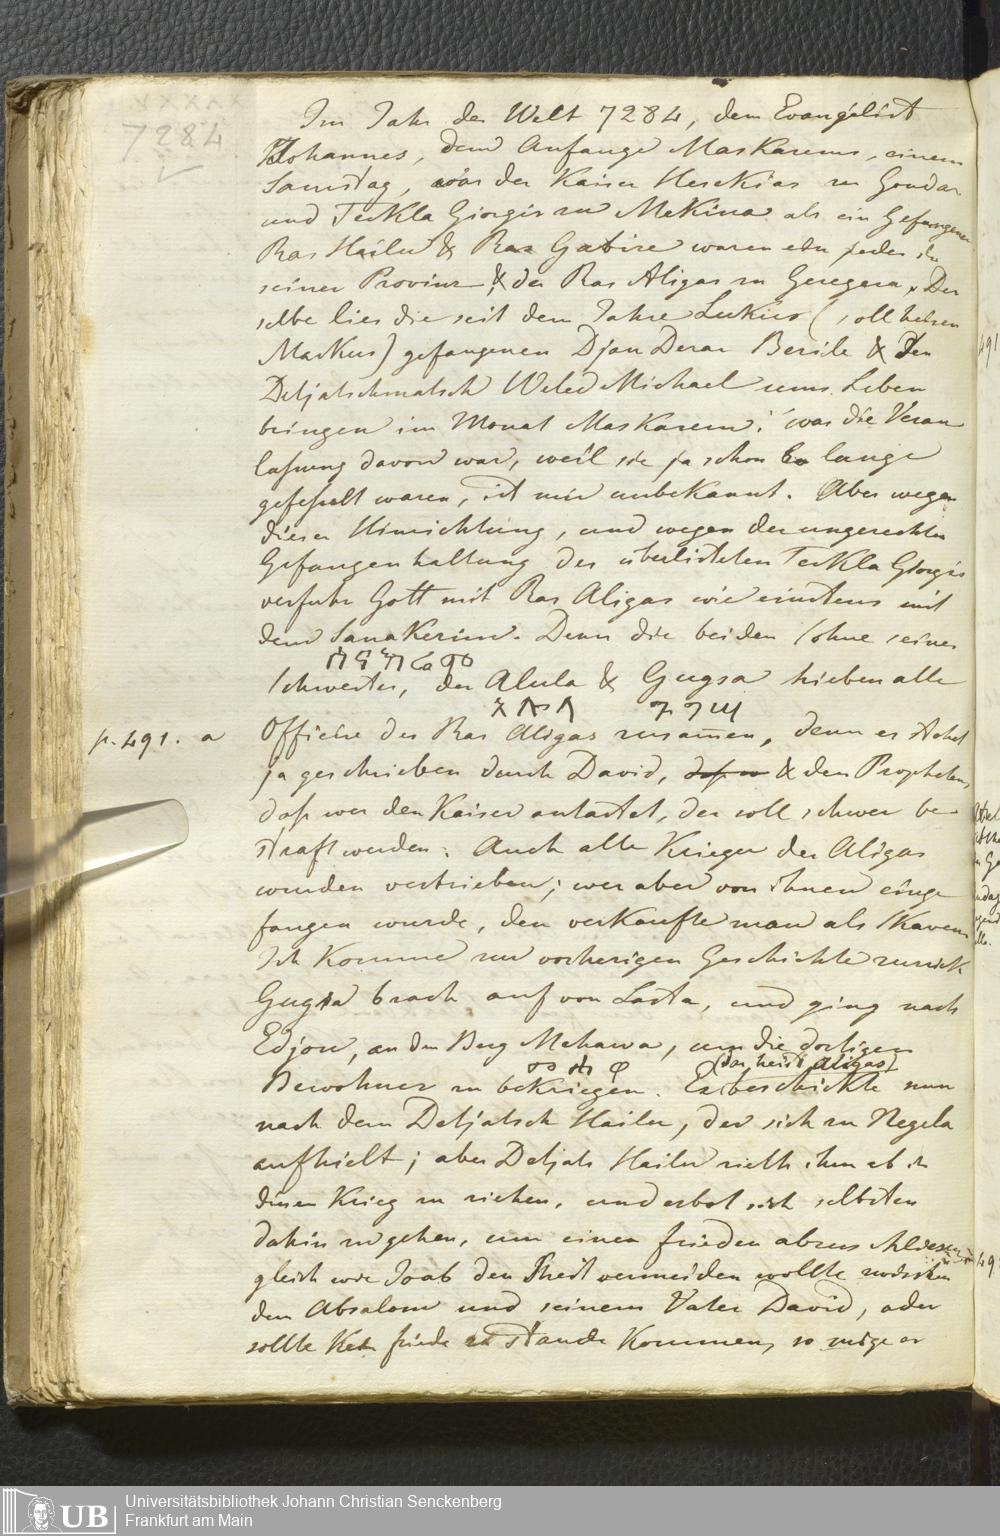 7284
Im Jahr der Welt 7284, dem Evangelist
Johannes, dem Anfange Maskarems, einem
Samstag, war der Kaiser Heskias zu Gondar
und Tekla Giorgis zu Mekina als ein Gefangener
Ras Hailu & Ras Gabire waren ein jeder in
seiner Provinz & der Ras Aligas zu Geregera. Der
selbe lies die seit dem Jahre Lukas (soll heisen
Markus) gefangenen Djan Derar Bersile & den
Detjatschmatsch Weled Michael ums Leben
bringen im Monat Maskarem; was die Veran
lassung davon war, weil sie ja schon so lange
gefesselt waren, ist mir unbekannt. Aber wegen
dieser Hinrichtung, und wegen der ungerechten
Gefangenhaltung des überlisteten Tekla Giorgis
verfuhr Gott mit Ras Aligas wie einstens mit
dem Sanakerim. Denn die beiden Söhne seiner
ሰናክሬም
Schwester, der Alula & Gugsa hieben alle
አሉላ ጉግሣ
p. 491. a Officire des Ras Aligas zusamen, denn es stehet
ja geschrieben durch David, & den Propheten,
daß wer den Kaiser antastet, der soll schwer be-
straft werden. Auch alle Krieger des Aligas
wurden vertrieben; wer aber von ihnen einge
fangen wurde, den verkaufte man als Sklaven
Ich komme zur vorherigen Geschichte zurück
Gugsa brach auf von Lasta, und ging nach
Edjou, an den Berg Mehawa, um die dortigen
(das heist Aligas)
Bewohner zu bekriegen. Er beschickte nun
nach dem Detjatsch Hailu, der sich zu Negela
aufhielt; aber Detjats Hailu rieth ihm ab in
diesen Krieg zu ziehen, und erbot sich selbsten
dahin zu gehen, um einen Frieden abzuschliesen
gleich wie Joab den Streit vermeiden wollte zwischen
dem Absalom und seinem Vater David, oder
sollte kein friede zu stande kommen, so möge er
UB
Universitätsbibliothek Johann Christian Senckenberg
Frankfurt am Main